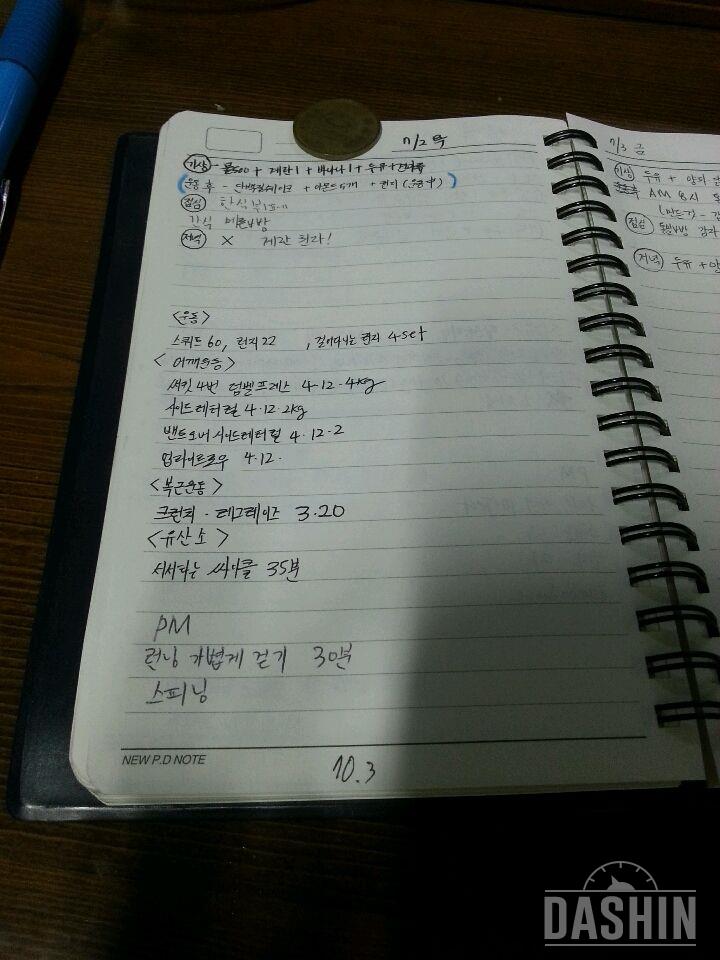 7/2 목
기상 - 물500 + 계란1 + 바나나1 + 두유 +
운동 후 - 단백질쉐이크 + 아몬드5개 + 런지(운동中)
점심 한식부페
간식 메론빵
저녁 X 계란 흰자!
<운동>
스쿼트 60, 런지 22 , 걸어다니는 런지 4set
<어깨운동>
써킷 4번 덤벨프레스 4-12-4kg
사이드레터럴 4-12-2kg
벤트오버사이드레터럴 4-12-2
업라이트로우 4-12-
<복근운동>
크런치 · 레그레이즈 3-20
<유산소>
서서타는 싸이클 35분
PM
런닝 가볍게 걷기 30분
스피닝
NEW P.D NOTE
10.3
7/3 금
기상 두유 +
AM 8시
점심
저녁 두유 +
DASHIN